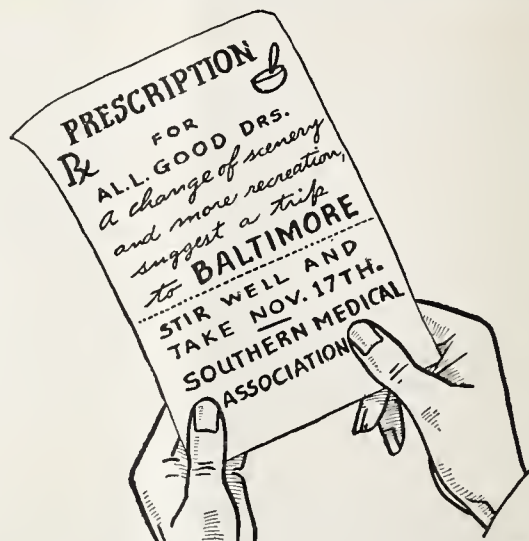 PRESCRIPTION
℞ FOR
AL.L. GOOD DRS.
A change of scenery
and more recreation,
suggest a trip
to BALTIMORE
STIR WELL AND
TAKE NOV. 17TH.
SOUTHERN MEDICAL
ASSOCIATION